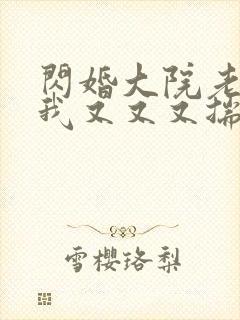 閃婚大院老
我又又又揣
雪櫻珞梨